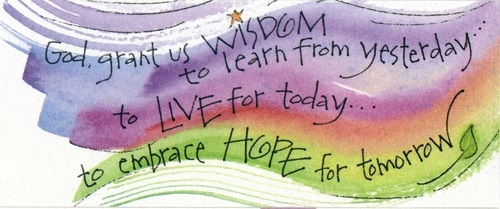 God, grant us WISDOM
to learn from yesterday...
to LIVE for today...
to embrace HOPE for tomorrow